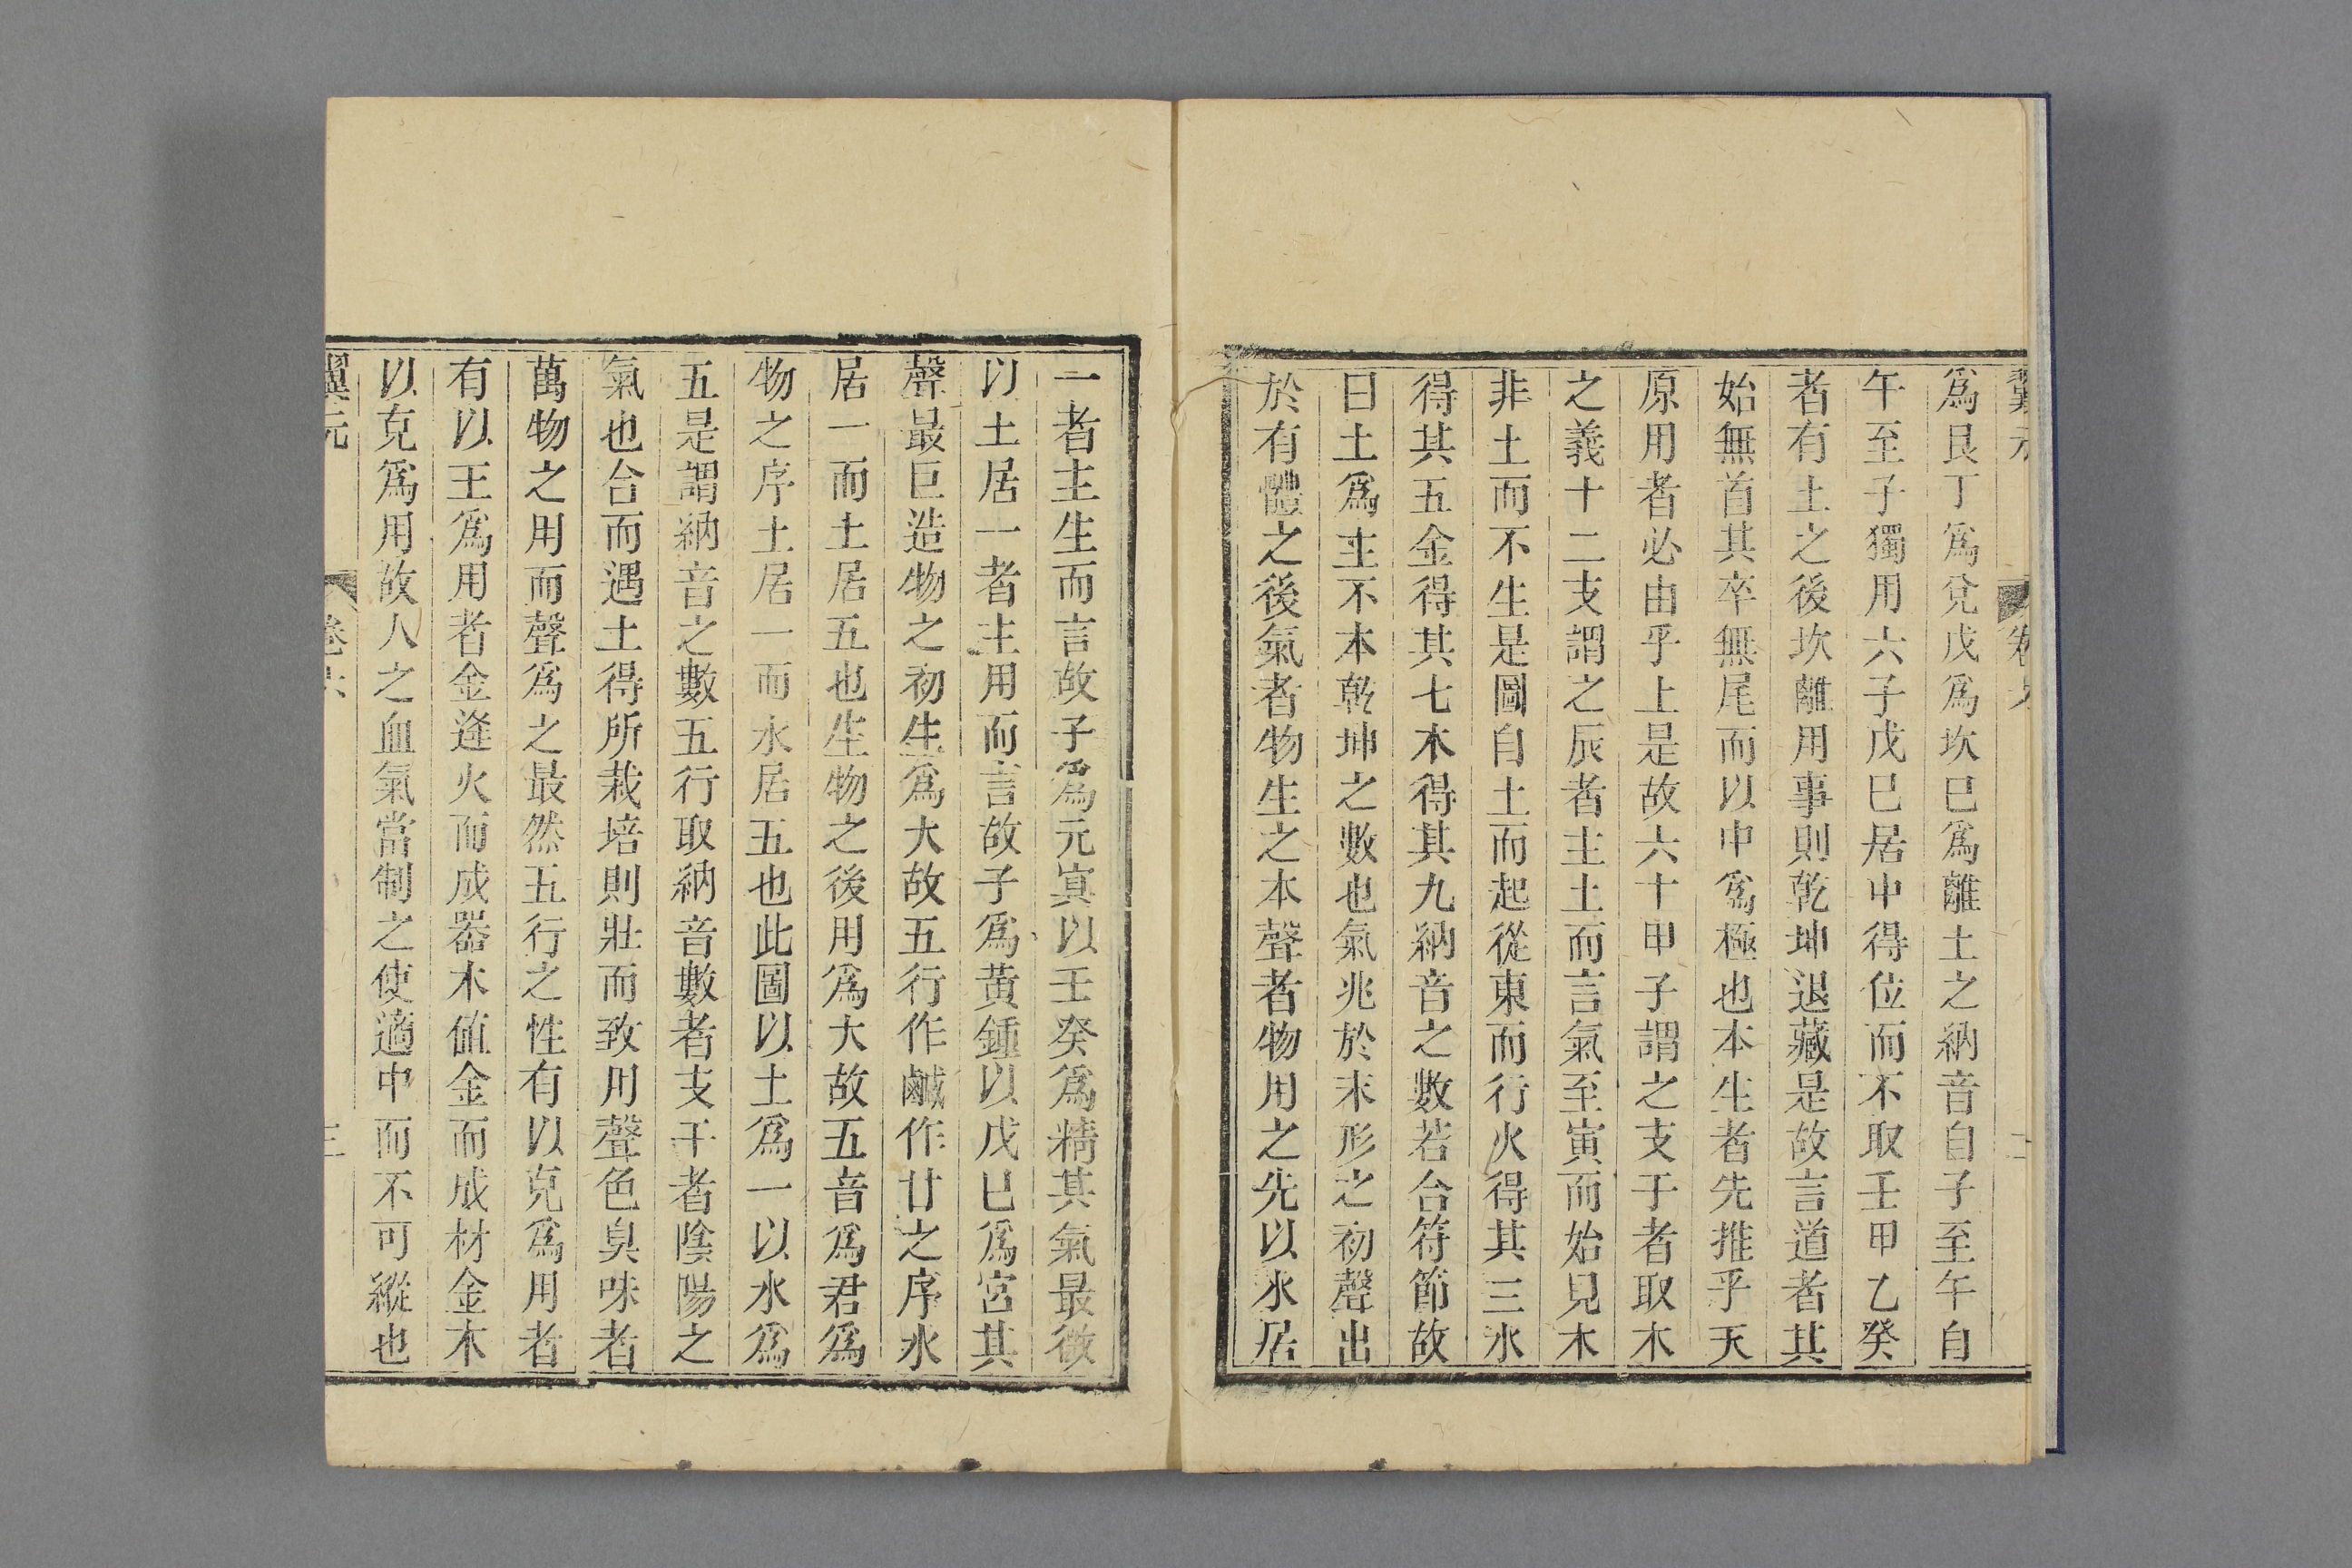 翼元 卷六 二
爲艮丁爲兌戊爲坎巳爲離土之納音自子至午自
午至子獨用六子戊巳居中得位而不取壬甲乙癸
者有土之後坎離用事則乾坤退藏是故言道者其
始無首其卒無尾而以中爲極也本生者先推乎天
原用者必由乎上是故六十甲子謂之支于者取木
之義十二支謂之辰者主土而言氣至寅而始見木
非土而不生是圖自土而起從東而行火得其三水
得其五金得其七木得其九納音之數若合符節故
曰土爲主不本乾坤之數也氣兆於未形之初聲出
於有體之後氣者物生之本聲者物用之先以水居
一者主生而言故子爲元寞以壬癸爲精其氣最微
以土居一者主用而言故子爲黄鍾以戊巳爲宮其
聲最巨造物之初生爲大故五行作鹹作甘之序水
居一而土居五也生物之後用爲大故五音爲君爲
物之序土居一而水居五也此圖以土爲一以水爲
五是謂納音之數五行取納音數者支干者陰陽之
氣也合而遇土得所栽培則壯而致用聲色臭味者
萬物之用而聲爲之最然五行之性有以克爲用者
有以王爲用者金逢火而成器木值金而成材金木
以克爲用故人之血氣當制之使適中而不可縱也
翼元 卷六 三